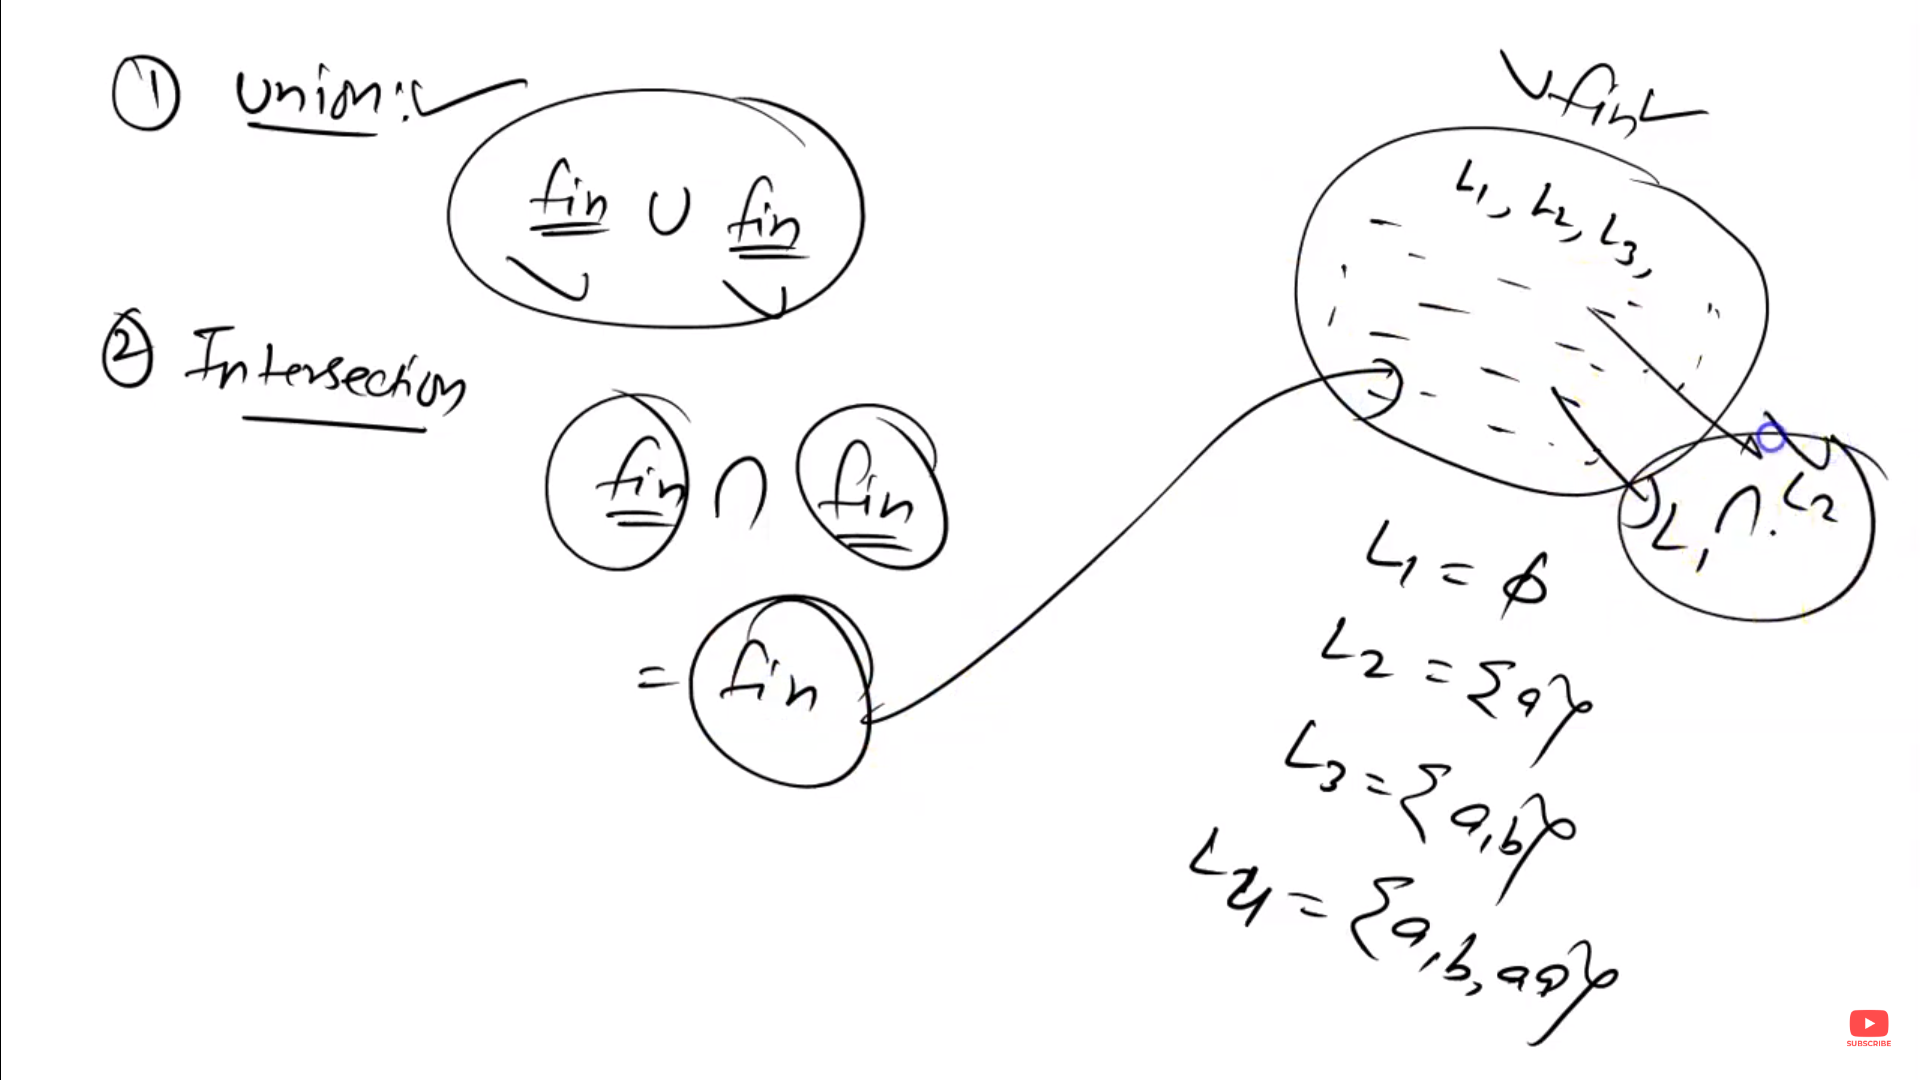 ① Union:
fin ∪ fin
② Intersection
fin ∩ fin
= fin
fin
L₁, L₂, L₃,
L₁ ∩ L₂
L₁ = ϕ
L₂ = {a}
L₃ = {a,b}
L₄ = {a,b,aa}
SUBSCRIBE